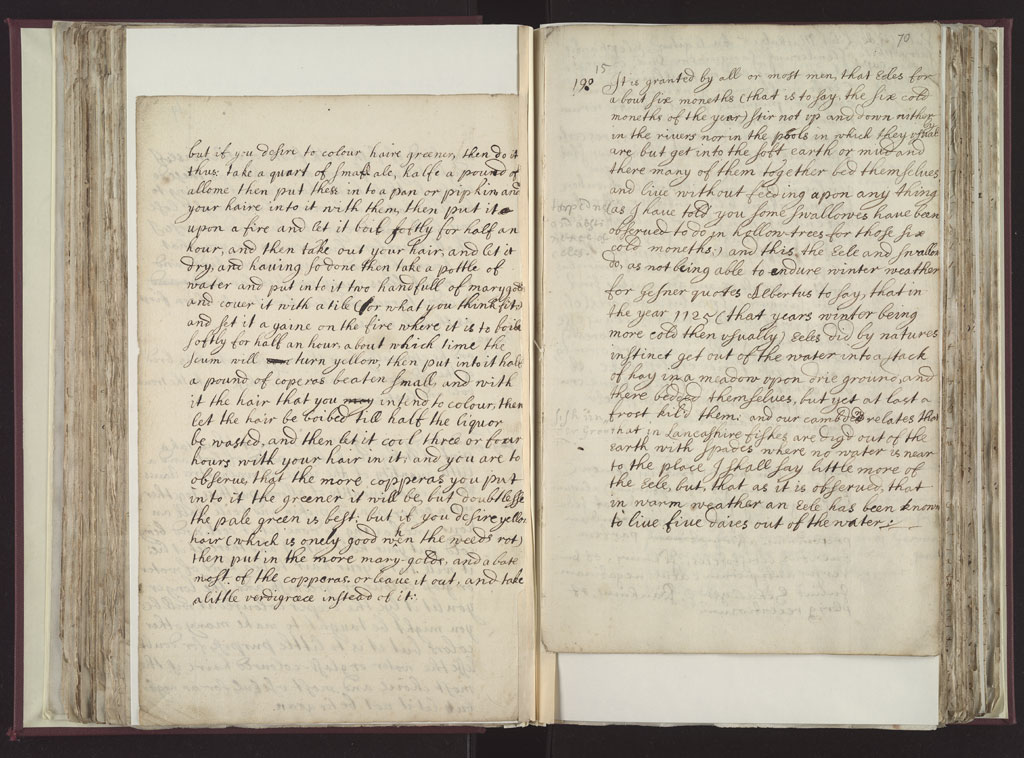 but if you desire to colour haire greener, then do it
thus: take a quart of small ale, halfe a pound of
allome then put these in to a pan or pipkin and
your haire into it with them, then put it
upon a fire and let it boil softly for half an
hour, and then take out your hair, and let it
dry, and having so done then take a pottle of
water and put into it two handfull of marygol
and cover it with a tile (or what you think fit)
and set it againe on the fire where it is to boile
softly for half an hour, about which time the
scum will turn yellow, then put into it half
a pound of coperas beaten small, and with
it the hair that you may intend to colour, then
let the hair be boiled till half the liquor
be wasted, and then let it cool three or four
hours with your hair in it: and you are to
observe, that the more copperas you put
in to it the greener it will be, but doubtlesse
the pale green is best: but if you desire yellow
hair (which is onely good when the weeds rot)
then put in the more mary-golds, and abate
most of the copperas or leave it out, and take
a little verdigrace instead of it:
70
15
190 It is granted by all or most men, that Eeles for
about six moneths (that is to say, the six cold
moneths of the year) stir not up and down nither
in the rivers nor in the pools in which they usual
ly
are but get into the soft earth or mud and
there many of them together bed themselves
and live without feeding upon any thing
(as I have told you some swallowes have been
observed to do in hollow trees for those six
cold moneths) and this the Eele and swallow
do, as not being able to endure winter weather
for Gesner quotes Albertus to say, that in
the year 1125 (that years winter being
more cold then usually) Eeles did by natures
instinct get out of the water into a stack
of hay in a meadow upon drie ground, and
there bedded themselves, but yet at last a
frost kil'd them: and our Cambden relates that
that in Lancashire fishes are dig'd out of the
earth with spades where no water is near
to the place I shall say little more of
the Eele, but, that as it is observed, that
in warm weather an Eele has been known
to live five daies out of the water: